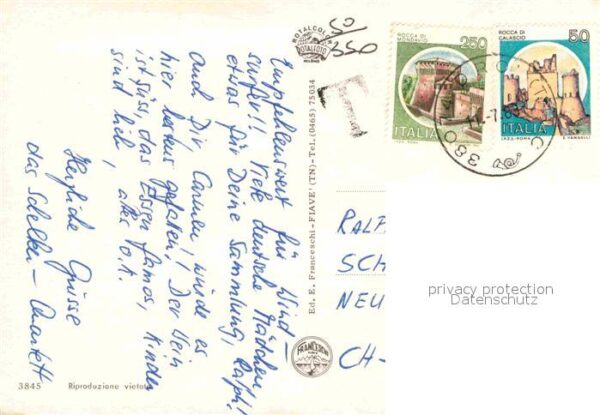 Empfehlenswert für Wind-
surfer!! Viele deutsche Mädchen
etwas für Deine Sammlung, Ralph!
Auch Dir, Carmen würde es
hier herum gefallen! Der Wein
ist süss, das Essen famos, Kinder
sind lieb, alles o.k.
Herzliche Grüsse
das Scheller-Quartett
3845 Riproduzione vietata
Ed. E. Franceschi-FIAVE' (TN)-Tel. (0465) 75034
ROTALCOLOR
ROTALFOTO
MILANO
50/350
T
FRANCESCHI
ROCCA DI MONDAVIO
250
ITALIA
I.P.Z.S.-ROMA
ROCCA DI CALASCIO
50
ITALIA
I.P.Z.S.-ROMA E. VANGELLI
380
RALF
SCH
NEU
CH-
privacy protection
Datenschutz